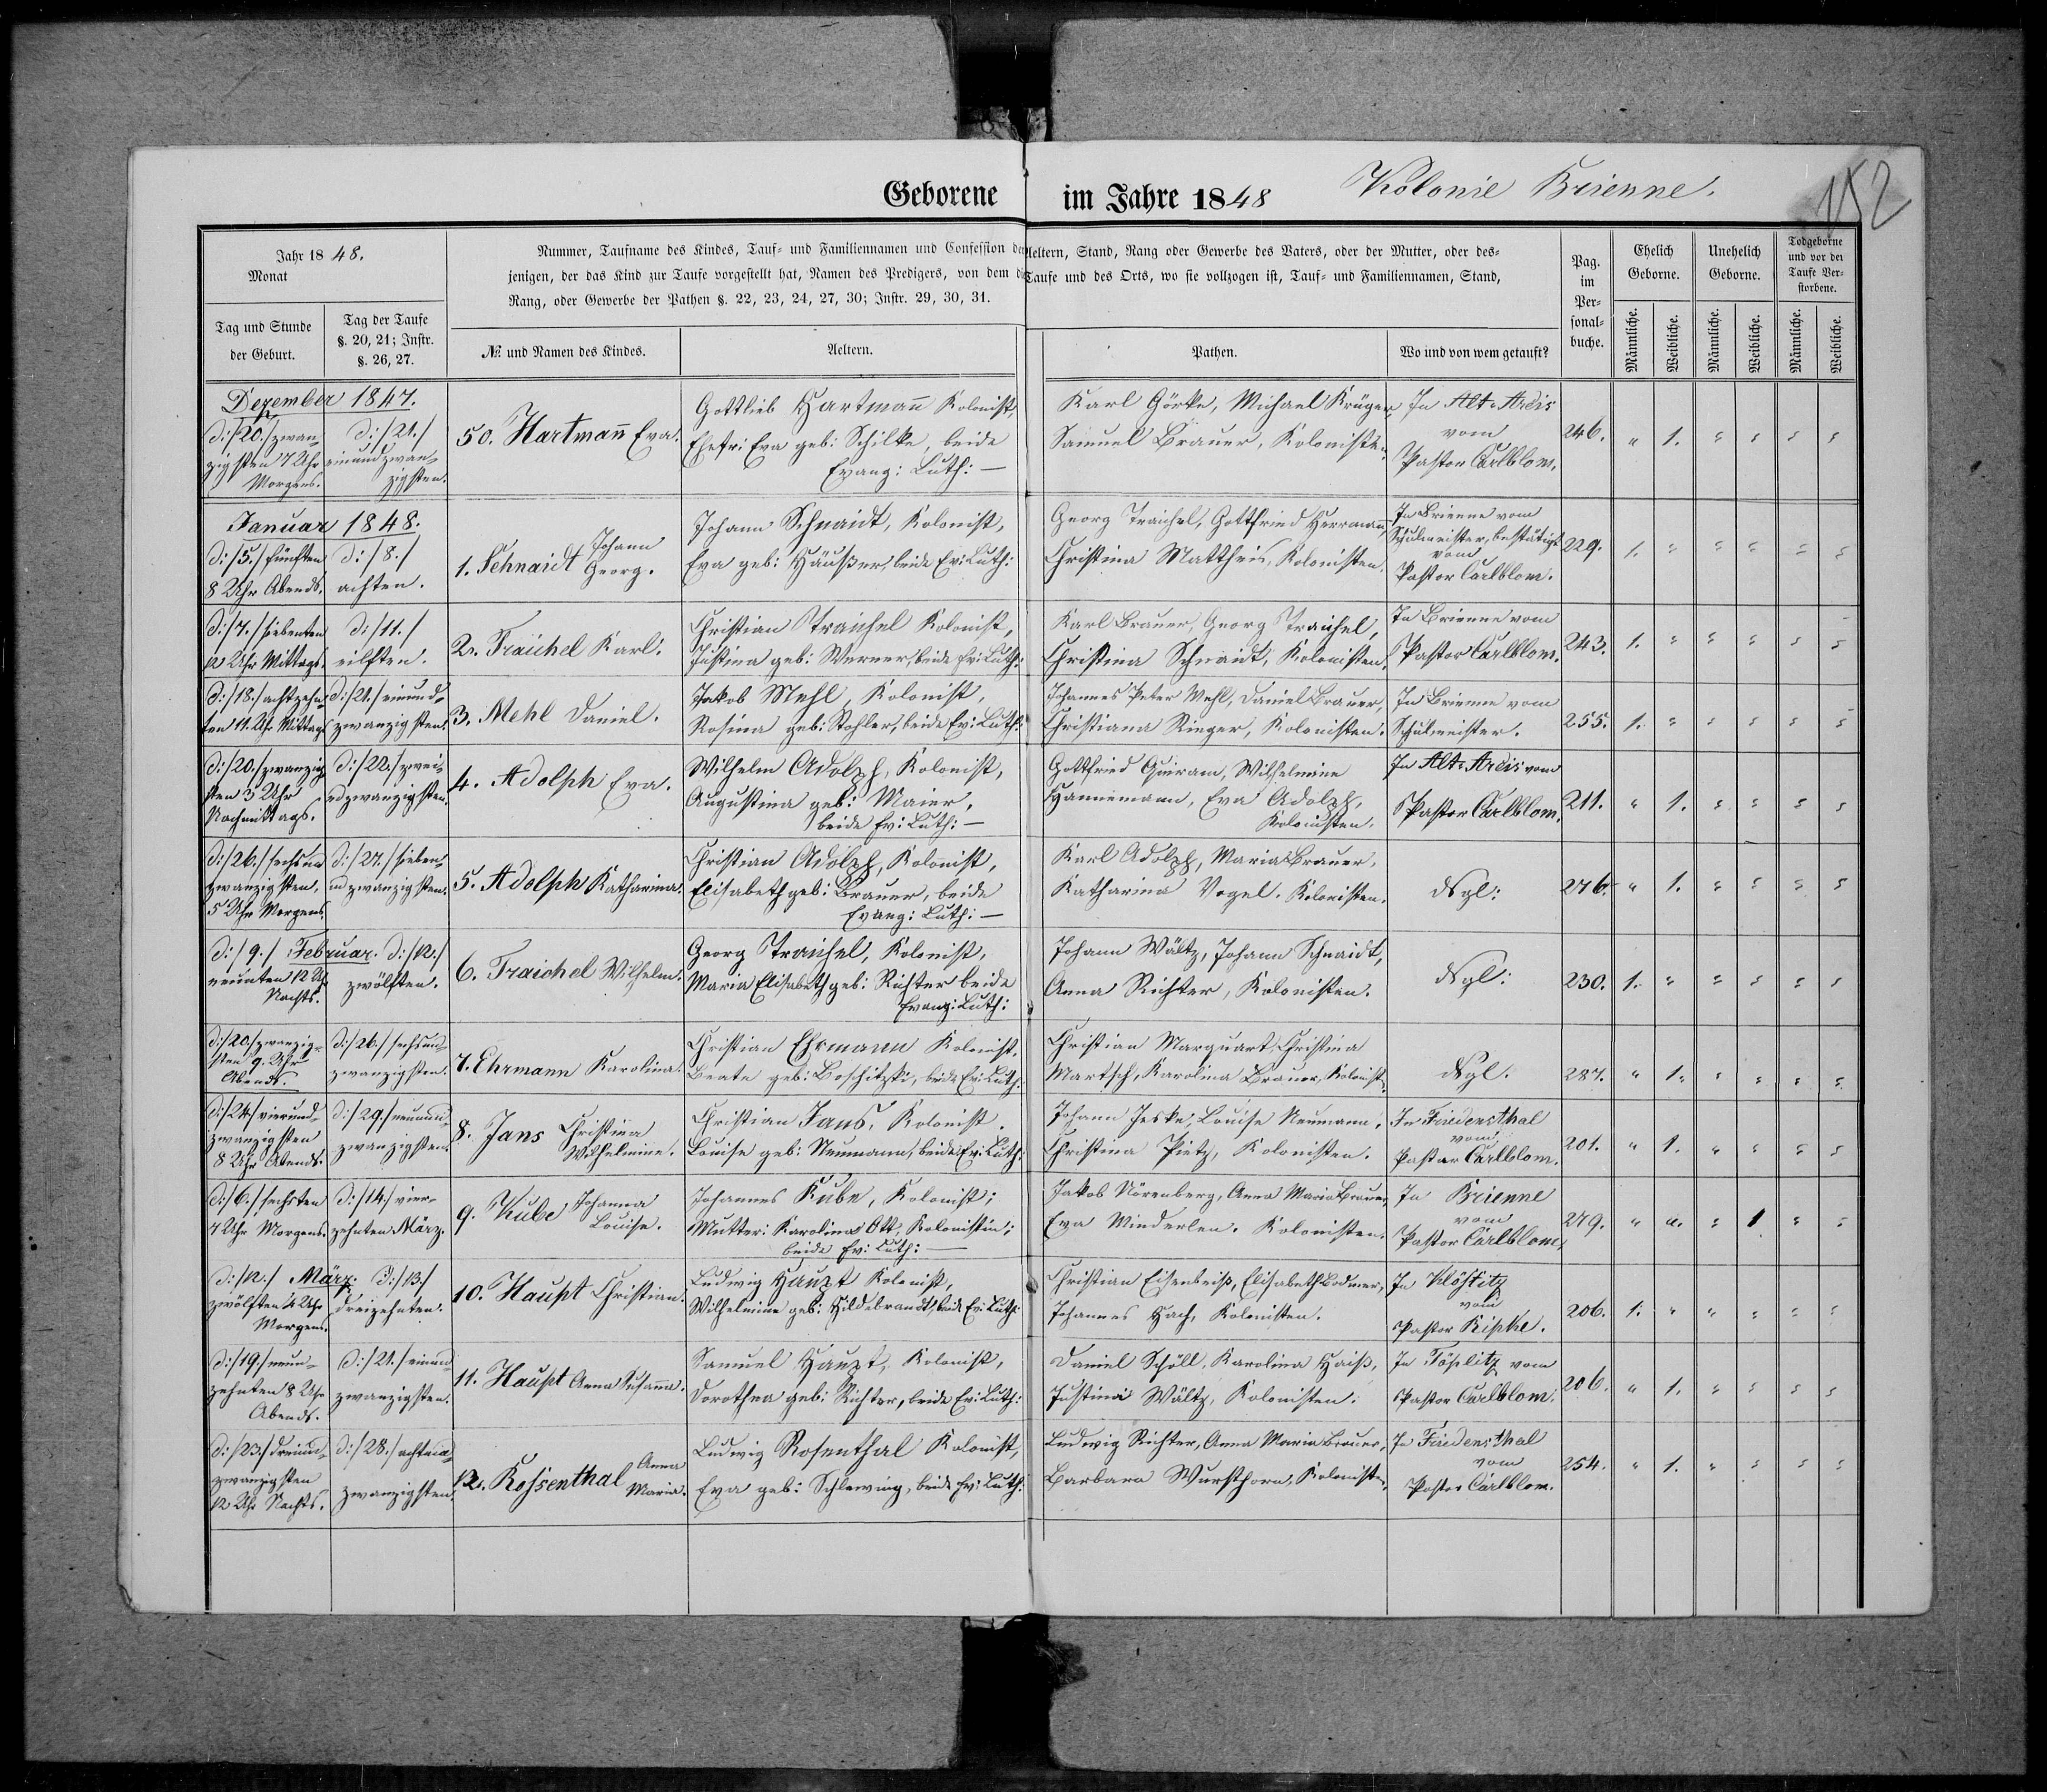 Geborene im Jahre 1848 Kolonie Brienne.
152
Jahr 1848.
Monat
Tag und Stunde
der Geburt.
Tag der Taufe
§. 20, 21; Instr.
§. 26, 27.
Nummer, Taufname des Kindes, Tauf- und Familiennamen und Confession der Aeltern, Stand, Rang oder Gewerbe des Vaters, oder der Mutter, oder des-
jenigen, der das Kind zur Taufe vorgestellt hat, Namen des Predigers, von dem die Taufe und des Orts, wo sie vollzogen ist, Tauf- und Familiennamen, Stand,
Rang, oder Gewerbe der Pathen §. 22, 23, 24, 27, 30; Instr. 29, 30, 31.
№ und Namen des Kindes.
Aeltern.
Pathen.
Wo und von wem getauft?
Pag.
im
Per-
sonal-
buche.
Ehelich
Geborne.
Unehelich
Geborne.
Todgeborne
und vor der
Taufe Ver-
storbene.
Männliche.
Weibliche.
Männliche.
Weibliche.
Männliche.
Weibliche.
Dezember 1847.
d: /20./ zwan-
zigsten 7 Uhr
Morgens.
d: /21./
einundzwan-
zigsten.
50. Hartmañ Eva.
Gottlieb Hartmañ Kolonist,
Ehefr: Eva geb: Schilke, beide
Evang: Luth: —
Karl Görke, Michael Krüger,
Samuel Brauer, Kolonisten.
In Alt-Arcis
vom
Pastor Carlblom.
246. " 1. " " " "
Januar 1848.
d: /5./ fünften
8 Uhr Abends.
d: /8./
achten.
1. Schnaidt Johann
Georg.
Johann Schnaidt, Kolonist,
Eva geb: Häußer, beide Ev: Luth:
Georg Traichel, Gottfried Herrmann,
Christina Mattheis, Kolonisten.
In Brienne vom
Schulmeister, bestätigt
vom
Pastor Carlblom.
229. 1. " " " " "
d: /7./ siebenten
12 Uhr Mittags.
d: /11./
eilften.
2. Traichel Karl.
Christian Traichel Kolonist,
Justina geb: Werner, beide Ev: Luth:
Karl Brauer, Georg Traichel,
Christina Schnaidt, Kolonisten.
In Brienne vom
Pastor Carlblom.
243. 1. " " " " "
d: /18./ achtzehn-
ten 11. Uhr Mittags
d: /21./ einund-
zwanzigsten.
3. Mehl Daniel.
Jakob Mehl, Kolonist,
Rosina geb: Stohler, beide Ev: Luth:
Johannes Peter Mehl, Daniel Brauer,
Christiana Rieger, Kolonisten.
In Brienne vom
Schulmeister.
255. 1. " " " " "
d: /20./ zwanzig-
sten 3 Uhr
Nachmittags.
d: /22./ zwei-
undzwanzigsten.
4. Adolph Eva.
Wilhelm Adolph, Kolonist,
Augustina geb: Maier,
beide Ev: Luth: —
Gottfried Quiram, Wilhelmine
Hannemann, Eva Adolph,
Kolonisten.
In Alt-Arcis vom
Pastor Carlblom.
211. " 1. " " " "
d: /26./ sechsund
zwanzigsten,
5 Uhr Morgens.
d: /27./ sieben-
undzwanzigsten.
5. Adolph Katharina.
Christian Adolph, Kolonist,
Elisabeth geb: Brauer, beide
Evang: Luth: —
Karl Adolph, Maria Brauer,
Katharina Vogel. Kolonisten.
dsgl:
276. " 1. " " " "
d: /9./ Februar. d: /12./
neunten 12 Uhr
Nachts.
zwölften.
6. Traichel Wilhelm.
Georg Traichel, Kolonist,
Maria Elisabeth geb: Richter beide
Evang: Luth:
Johann Wältz, Johann Schnaidt,
Anna Richter, Kolonisten.
dsgl:
230. 1. " " " " "
d: /20./ zwanzig-
sten 9. Uhr
Abends.
d: /26./ sechsund-
zwanzigsten.
7. Ehrmann Karolina.
Christian Ehrmann Kolonist.
Beate geb: Boschitzki, beide Ev: Luth:
Christian Marquart, Christina
Martsch, Karolina Brauer, Kolonist.
dsgl.
287. " 1. " " " "
d: /24./ vierund-
zwanzigsten
8 Uhr Abends.
d: /29./ neunund-
zwanzigsten.
8. Jans Christina
Wilhelmine.
Christian Jans, Kolonist.
Louise geb: Neumann, beide Ev: Luth:
Johann Jeske, Louise Neumann,
Christina Pietz, Kolonisten.
In Friedensthal
vom
Pastor Carlblom.
201. " 1. " " " "
d: /6./ sechsten
7 Uhr Morgens.
d: /14./ vier-
zehnten März.
9. Kube Johanna
Louise.
Johannes Kube, Kolonist;
Mutter: Karolina Ott, Kolonistin;
beide Ev: Luth: —
Jakob Nörenberg, Anna Maria Brauer,
Eva Minderlen. Kolonisten.
In Brienne
vom
Pastor Carlblom.
279. " " " 1 " "
d: /12./ März. d: /13./
zwölften 4 Uhr
Morgens.
dreizehnten.
10. Haupt Christian.
Ludwig Haupt Kolonist,
Wilhelmine geb: Hildebrandt, beide Ev: Luth:
Christian Eisenbeiß, Elisabeth Bodmer,
Johannes Hach, Kolonisten.
In Klöstitz
vom
Pastor Kiphe.
206. 1. " " " " "
d: /19./ neun-
zehnten 8 Uhr
Abends.
d: /21./ einund
zwanzigsten.
11. Haupt Anna Susanna.
Samuel Haupt, Kolonist,
Dorothea geb: Richter, beide Ev: Luth:
Daniel Schöll, Karolina Haiß,
Justina Wältz, Kolonisten.
In Töplitz vom
Pastor Carlblom.
206. " 1. " " " "
d: /23./ dreiund-
zwanzigsten
12 Uhr Nachts.
d: /28./ achtund-
zwanzigsten.
12. Rossenthal Anna
Maria.
Ludwig Rosenthal Kolonist,
Eva geb: Schlewing, beide Ev: Luth:
Ludwig Richter, Anna Maria Brauer,
Barbara Wursthorn, Kolonisten.
In Friedensthal
vom
Pastor Carlblom.
254. " 1. " " " "